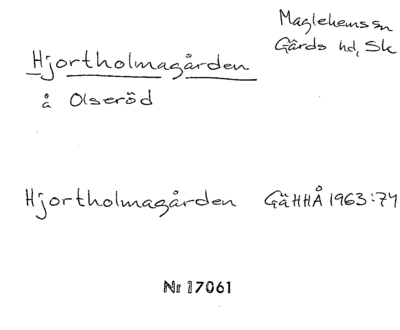 Maglehems sn
Gärds hd, Sk
Hjortholmagården
å Olseröd
Hjortholmagården GäHHÅ 1963:74
Nr 17061